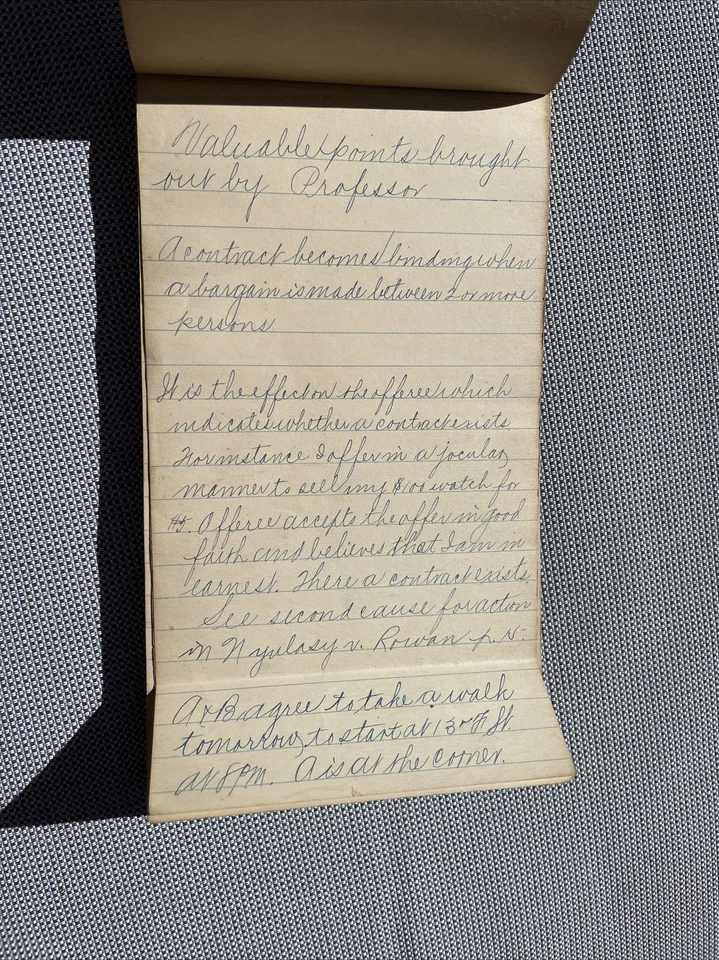 Valuable points brought
out by Professor
A contract becomes binding when
a bargain is made between 2 or more
persons
It is the effect on the offeree which
indicates whether a contract exists.
For instance I offer in a jocular
manner to sell my $100 watch for
$5. Offeree accepts the offer in good
faith and believes that I am in
earnest. There a contract exists.
See second cause for action
in Nyulasy v. Rowan p.
A & B agree to take a walk
tomorrow, to start at 13 & F St.
at 8 PM. A is at the corner.